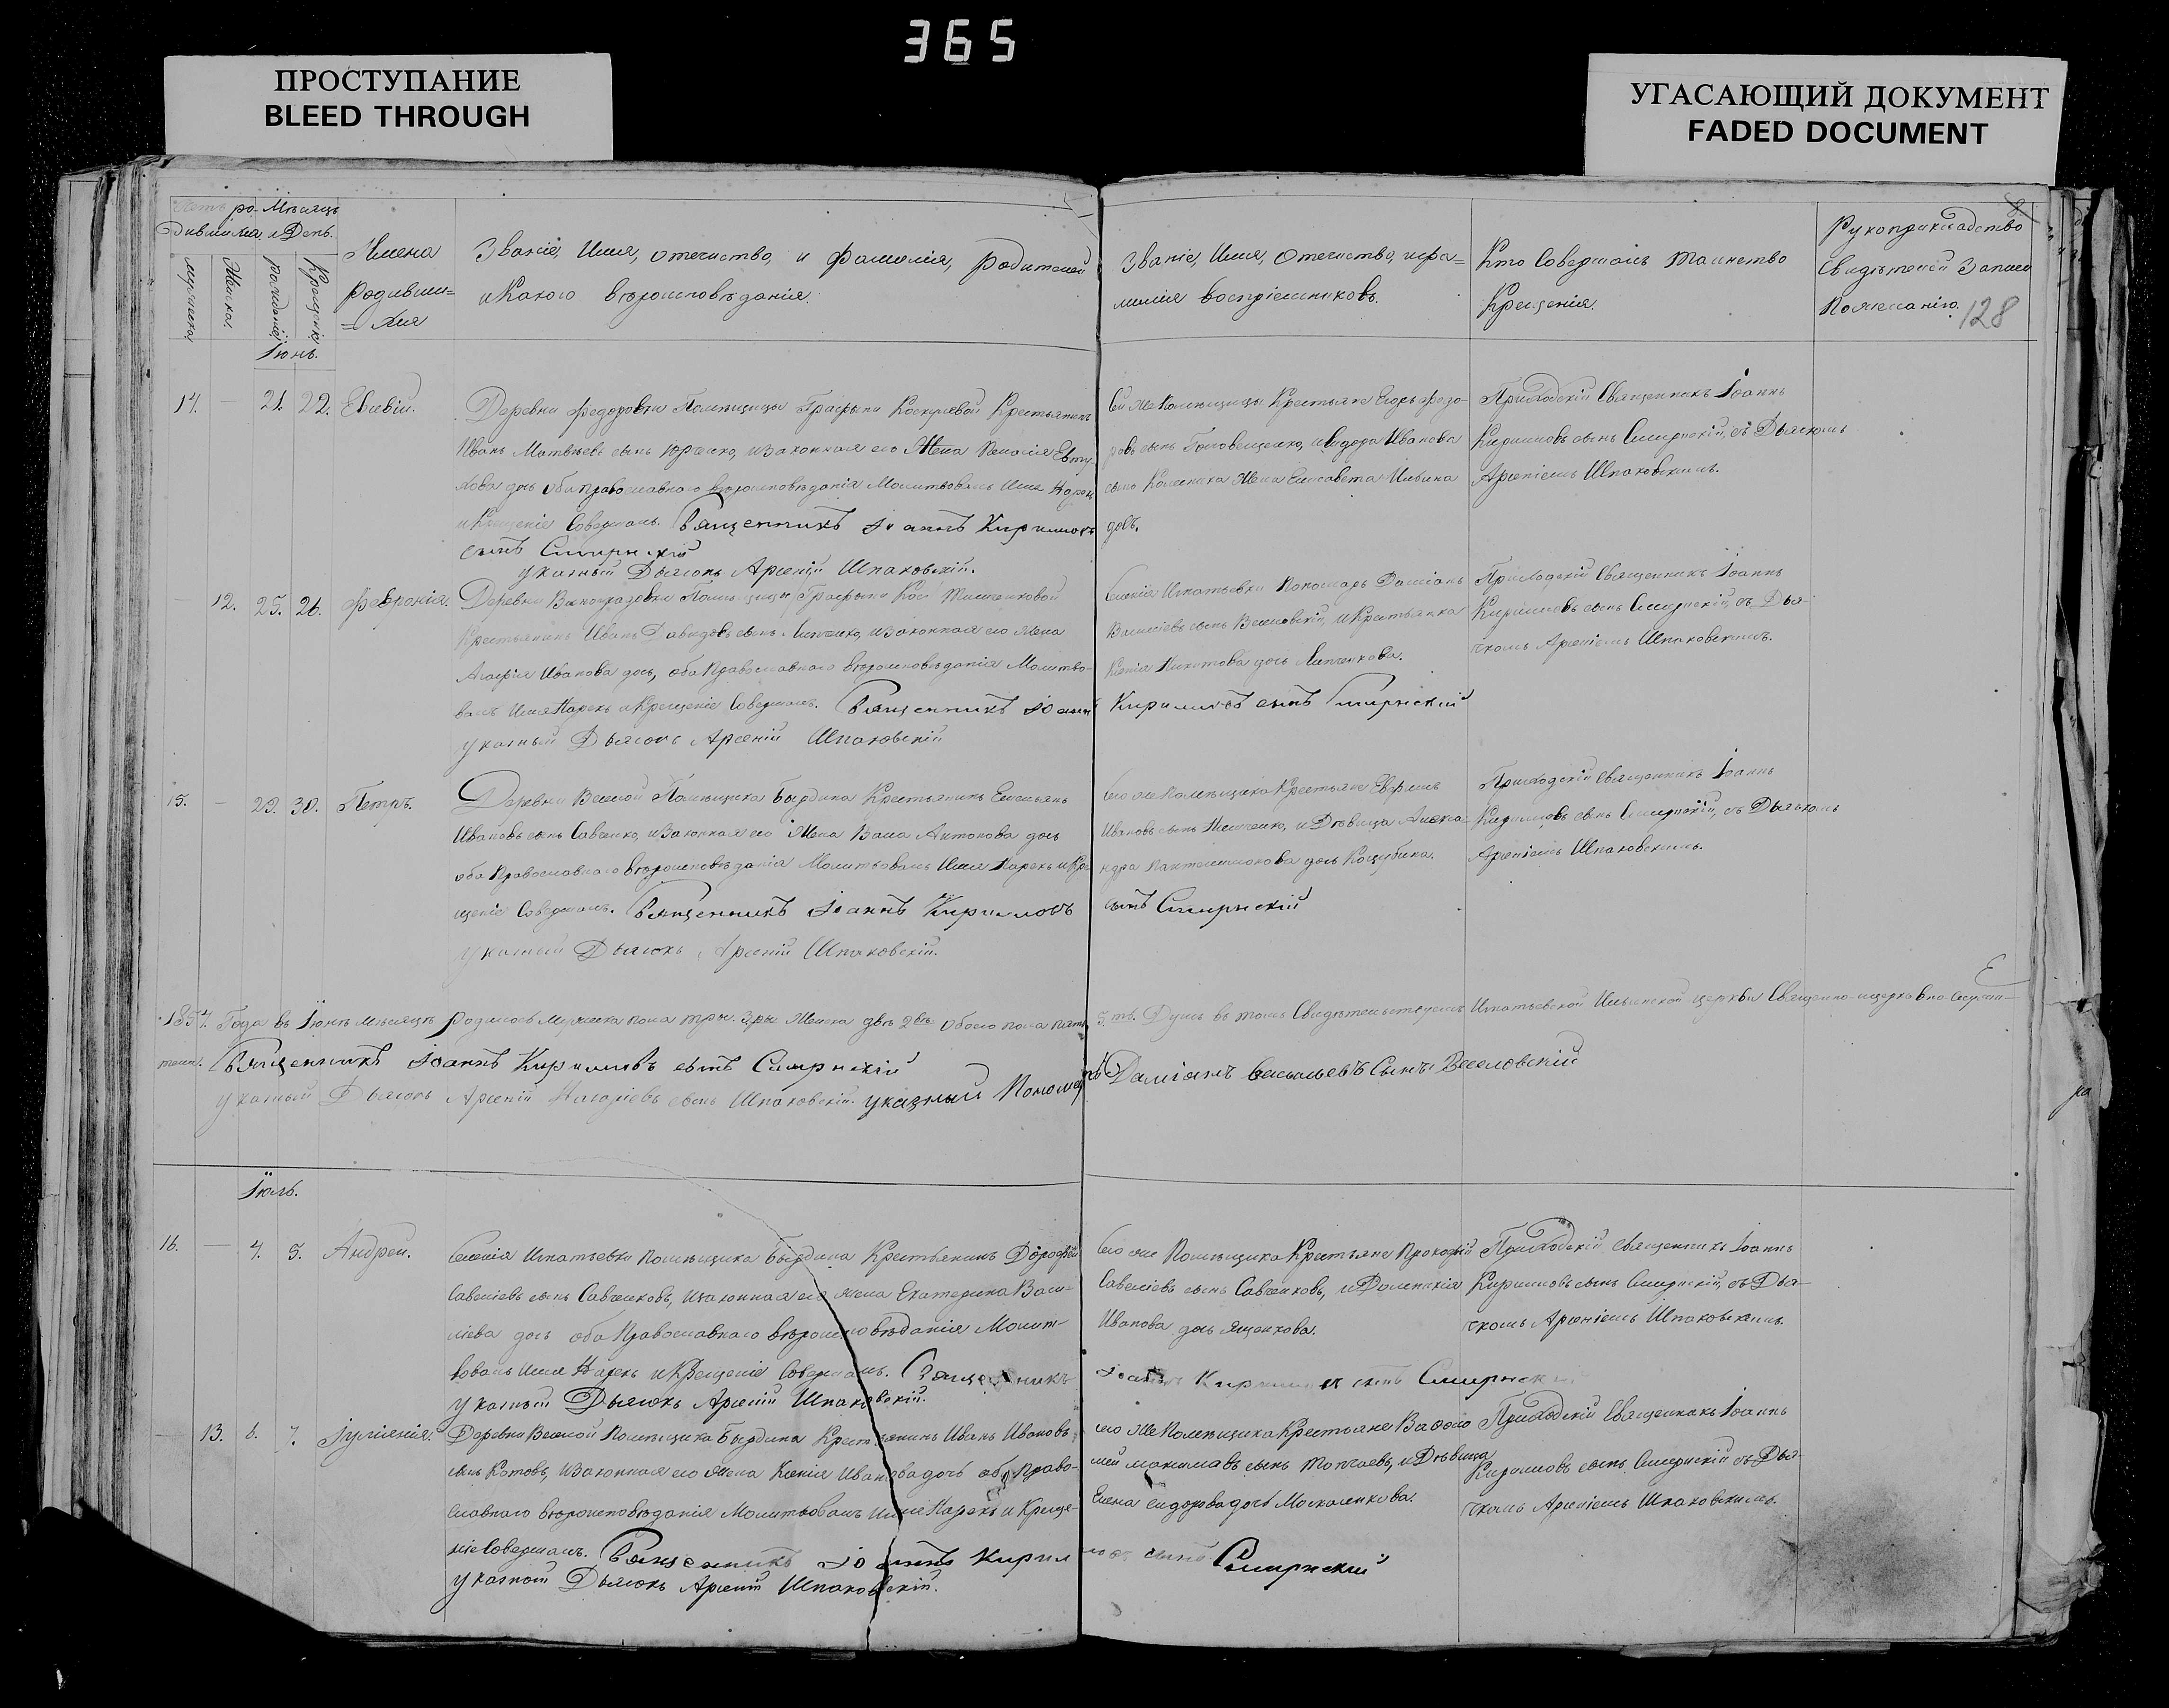 365
ПРОСТУПАНИЕ
BLEED THROUGH
УГАСАЮЩИЙ ДОКУМЕНТ
FADED DOCUMENT
Мѣсяцъ
и День.
Имена
родивши=
=хся
Званіе, Имя, отечество, и фамилія, родителей
и Какого вѣроисповѣданія.
Званіе, Имя, Отечество, и фа=
милія воспріемниковъ.
Кто Совершалъ таинство
Крещенія.
Рукоприкладство
Свидѣтелей Записи
По желанію.
128
Мужеска.
Женска.
рожденія
Крещенія
Іюнь.
14. — 21. 22. Евсевій.
Деревни Федоровки Помѣщицы Крестьянинъ
Иванъ Матвѣевъ сынъ Юрченко, и законная его Жена
дочь оба православнаго вѣроисповѣданія Молитвовалъ Имя Нарекъ
и Крещеніе Совершалъ. Священникъ Іоаннъ Кирилловъ
сынъ Смирнскій
указный Дьячокъ Арсеній Шпаковскій.
Сей же Помѣщицы Крестьяне Федо-
ровъ сынъ и Сидора Иванова
сына Жена Елисавета Ильина
дочь.
Приходскій Священникъ Іоаннъ
Кирилловъ сынъ Смирнскій, съ Дьячкомъ
Арсеніемъ Шпаковскимъ.
— 12. 25. 26. Февронія.
Деревни Помѣщицы
Крестьянинъ Иванъ Давидовъ сынъ и законная его Жена
Агафія Иванова дочь, оба Православнаго вѣроисповѣданія Молитво-
валъ Имя Нарекъ и Крещеніе Совершалъ. Священникъ Іоаннъ
указный Дьячокъ Арсеній Шпаковскій
Селенія Игнатьевки Пономарь Даміанъ
Василіевъ сынъ Веселовскій, и Крестьянка
Ксенія Никитова дочь
Кирилловъ сынъ Смирнскій
Приходскій Священникъ Іоаннъ
Кирилловъ сынъ Смирнскій, съ Дья-
чкомъ Арсеніемъ Шпаковскимъ.
15. — 29. 30. Петръ.
Деревни Веселой Помѣщика Бырдина Крестьянинъ Емельянъ
Ивановъ сынъ Савченко, и Законная его Жена Васса Антонова дочь
оба Православнаго вѣроисповѣданія Молитвовалъ Имя Нарекъ и Кре-
щеніе Совершалъ. Священникъ Іоаннъ Кирилловъ
указный Дьячокъ Арсеній Шпаковскій.
Сего же Помѣщика Крестьяне Ефремъ
Ивановъ сынъ и Дѣвица Алекса-
ндра Пантелеимонова дочь Коцубина.
сынъ Смирнскій
Приходскій Священникъ Іоаннъ
Кирилловъ сынъ Смирнскій, съ Дьячкомъ
Арсеніемъ Шпаковскимъ.
Года въ Іюнѣ мѣсяцѣ родилось Мужеска пола три. 3ри Женска двѣ 2вѣ обоего пола пять
5.ть. Душъ въ томъ Свидѣтельствуемъ Игнатьевской Ильинской церкви Священно-и-церковно-служи-
тели. Священникъ Іоаннъ Кирилловъ сынъ Смирнскій
указный Дьячокъ Арсеній сынъ Шпаковскій. указный Пономарь
Даміанъ Васильевъ Сынъ Веселовскій
Іюль.
16. — 4. 5. Андрей.
Селенія Игнатьевки Помѣщика Бырдина Крестьянинъ Дорофей
Савеліевъ сынъ Савченковъ, и законная его жена Екатерина Васи-
ліева дочь оба Православнаго вѣроисповѣданія Молит-
вовалъ Имя Нарекъ и Крещеніе Совершалъ. Священникъ
указный Дьячокъ Арсеній Шпаковскій.
Сего же Помѣщика Крестьяне Прокофій
Савеліевъ сынъ Савченковъ, и Домникія
Иванова дочь Ященкова.
Іоаннъ Кирилловъ сынъ Смирнскій
Приходскій Священникъ Іоаннъ
Кирилловъ сынъ Смирнскій, съ Дья-
чкомъ Арсеніемъ Шпаковскимъ.
— 13. 6. 7. Іуліанія.
Деревни Веселой Помѣщика Бырдина Крестьянинъ Иванъ Ивановъ
сынъ Котовъ, и Законная его Жена Ксенія Иванова дочь оба Право-
славнаго вѣроисповѣданія Молитвовалъ имя Нарекъ и Креще-
ніе Совершалъ. Священникъ Іоаннъ Кирил
указный Дьячокъ Арсеній Шпаковскій.
сего же Помѣщика Крестьяне Вафоло
мей Максимавъ сынъ Топчаевъ, и Дѣвица
Елена Сидорова дочь Москаленкова.
ловъ сынъ Смирнскій
Приходскій Священникъ Іоаннъ
Кирилловъ сынъ Смирнскій съ Дья-
чкомъ Арсеніемъ Шпаковскимъ.